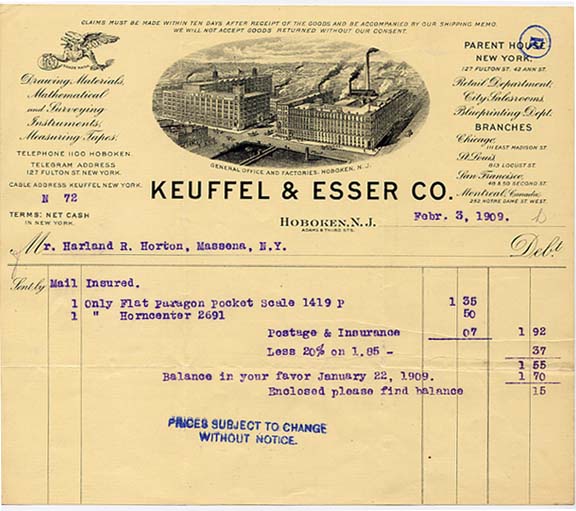 CLAIMS MUST BE MADE WITHIN TEN DAYS AFTER RECEIPT OF THE GOODS AND BE ACCOMPANIED BY OUR SHIPPING MEMO.
WE WILL NOT ACCEPT GOODS RETURNED WITHOUT OUR CONSENT.
TRADE MARK
Drawing Materials,
Mathematical
and Surveying
Instruments,
Measuring Tapes.
TELEPHONE 1100 HOBOKEN.
TELEGRAM ADDRESS
127 FULTON ST. NEW YORK.
CABLE ADDRESS KEUFFEL NEW YORK.
N 72
TERMS: NET CASH
IN NEW YORK.
GENERAL OFFICE AND FACTORIES, HOBOKEN, N.J.
KEUFFEL & ESSER CO.
HOBOKEN, N.J.
ADAMS & THIRD STS.
PARENT HOUSE
NEW YORK.
127 FULTON ST. 42 ANN ST.
Retail Department,
City Salesrooms,
Blueprinting Dept.
BRANCHES
Chicago,
111 EAST MADISON ST.
St. Louis,
813 LOCUST ST.
San Francisco,
48 & 50 SECOND ST.
Montreal, Canada,
252 NOTRE DAME ST. WEST.
Febr. 3, 1909.
Mr. Harland R. Horton, Massena, N.Y. Debt.
Sent by Mail Insured.
1 Only Flat Paragon Pocket Scale 1419 P 1 35
1 " Horncenter 2691 50
Postage & Insurance 07 1 92
Less 20% on 1.85 - 37
1 55
Balance in your favor January 22, 1909. 1 70
Enclosed please find balance 15
PRICES SUBJECT TO CHANGE
WITHOUT NOTICE.